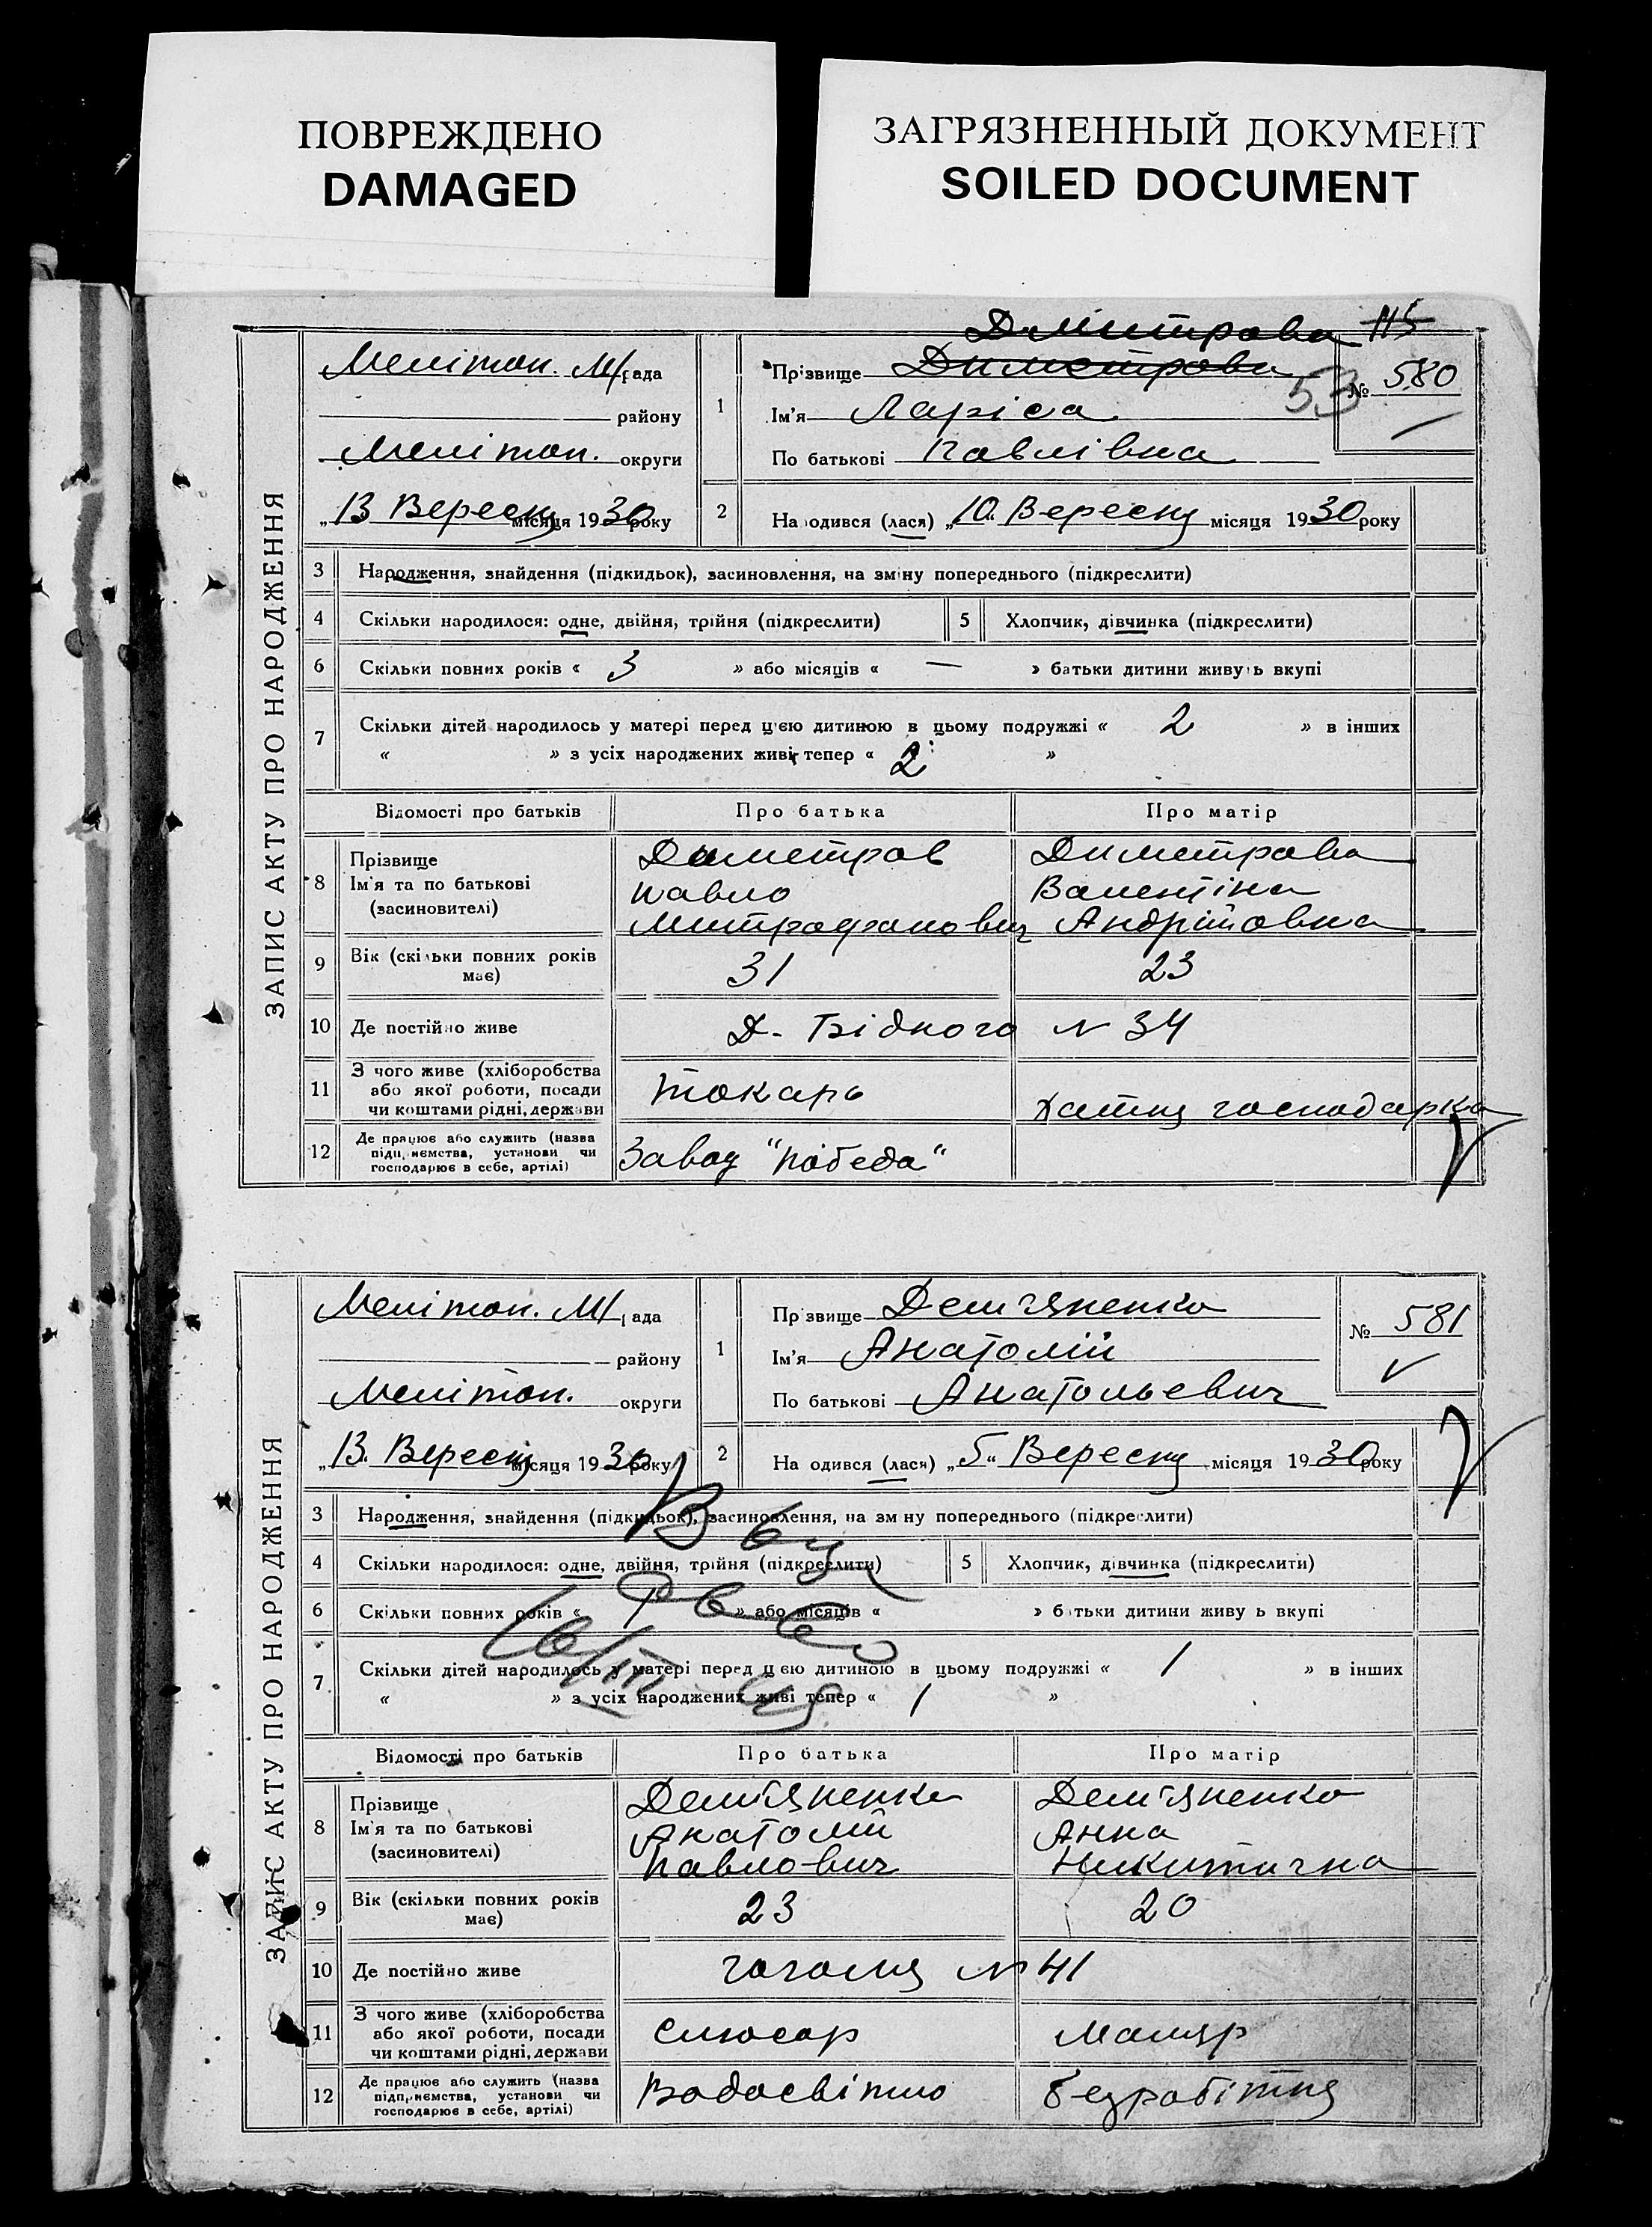 ПОВРЕЖДЕНО
DAMAGED
ЗАГРЯЗНЕННЫЙ ДОКУМЕНТ
SOILED DOCUMENT
ЗАПИС АКТУ ПРО НАРОДЖЕННЯ
Димитрова 115
Меліtоп. М/рада
району
Меліtоп. округи
„13 Вересня місяця 1930 року
1
Прізвище Диметрова
Ім'я Ларіса
По батькові Павлівна
53
№ 580
2 На одився (лася) „10" Вересня місяця 1930 року
3 Народження, знайдення (підкидьок), засиновлення, на зміну попереднього (підкреслити)
4 Скільки народилося: одне, двійня, трійня (підкреслити) 5 Хлопчик, дівчинка (підкреслити)
6 Скільки повних років « 3 » або місяців « — » батьки дитини живуть вкупі
7 Скільки дітей народилось у матері перед цією дитиною в цьому подружжі « 2 » в інших
« » з усіх народжених живі тепер « 2 »
Відомості про батьків Про батька Про матір
8 Прізвище Диметров Диметрова
Ім'я та по батькові Павло Валентіна
(засиновителі) Митрофанович Андріївна
9 Вік (скільки повних років має) 31 23
10 Де постійно живе Д. Бідного N 34
11 З чого живе (хліборобства
або якої роботи, посади
чи коштами рідні, держави Токарь Хатня господарка
12 Де працює або служить (назва
підприємства, установи чи
господарює в себе, артілі) Завод "Победа"
ЗАПИС АКТУ ПРО НАРОДЖЕННЯ
Меліtоп. М/рада
району
Меліtоп. округи
„13" Вересня місяця 1930 року
1
Пр звище Дем'яненко
Ім'я Анатолій
По батькові Анатольевич
№ 581
2 На одився (лася) „5" Вересня місяця 1930 року
3 Народження, знайдення (підкидьок), засиновлення, на зм ну попереднього (підкреслити)
4 Скільки народилося: одне, двійня, трійня (підкреслити) 5 Хлопчик, дівчинка (підкреслити)
6 Скільки повних років « » або місяців « » б тьки дитини живу ь вкупі
7 Скільки дітей народилось у матері перед цією дитиною в цьому подружжі « 1 » в інших
« » з усіх народжених живі тепер « 1 »
Відомості про батьків Про батька Про матір
8 Прізвище Дем'яненко Дем'яненко
Ім'я та по батькові Анатолій Анна
(засиновителі) Павлович Никитична
9 Вік (скільки повних років має) 23 20
10 Де постійно живе Гоголя N 41
11 З чого живе (хліборобства
або якої роботи, посади
чи коштами рідні, держави Слюсар Маляр
12 Де працює або служить (назва
підприємства, установи чи
господарює в себе, артілі) Водосвітло безробітня